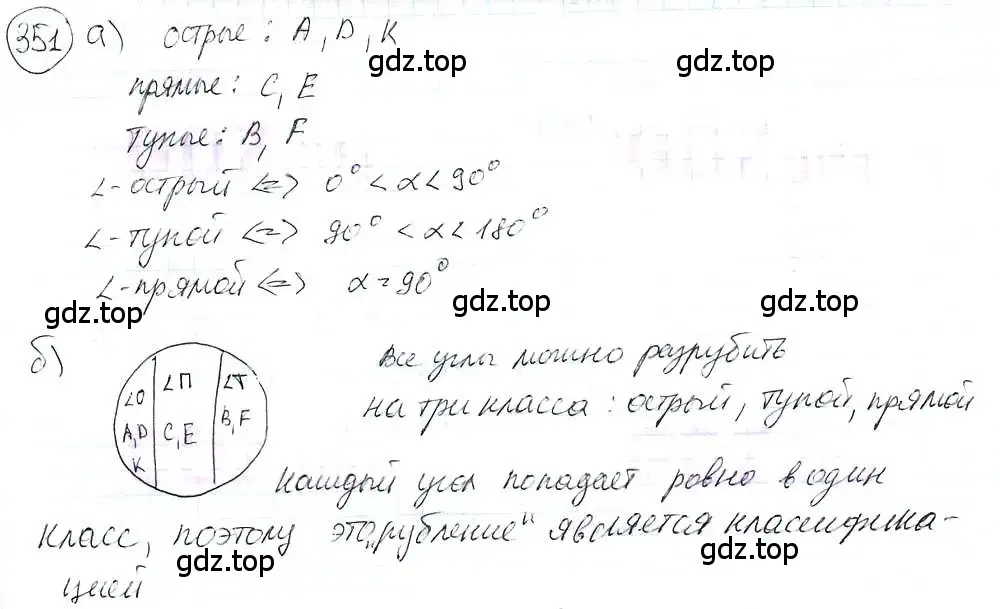 351 а) острые : A, D, K
gdz.top gdz.top
прямые : C, E
Тупые : B, F
∠-острый <=> 0° < α < 90°
∠-тупой <=> 90° < α < 180°
∠-прямой <=> α = 90°
gdz.top gdz.top gdz.top
б) ∠О ∠П ∠Т
A, D C, E B, F
K
Все углы можно разрубить
на три класса : острый, тупой, прямой
Каждый угол попадает ровно в один
класс, поэтому это „рубление" является классифика-
цией
gdz.top gdz.top